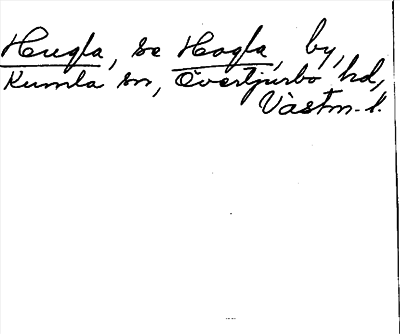 Hugla, se Hogla, by,
Kumla sn, Övertjurbo hd,
Västm. l.